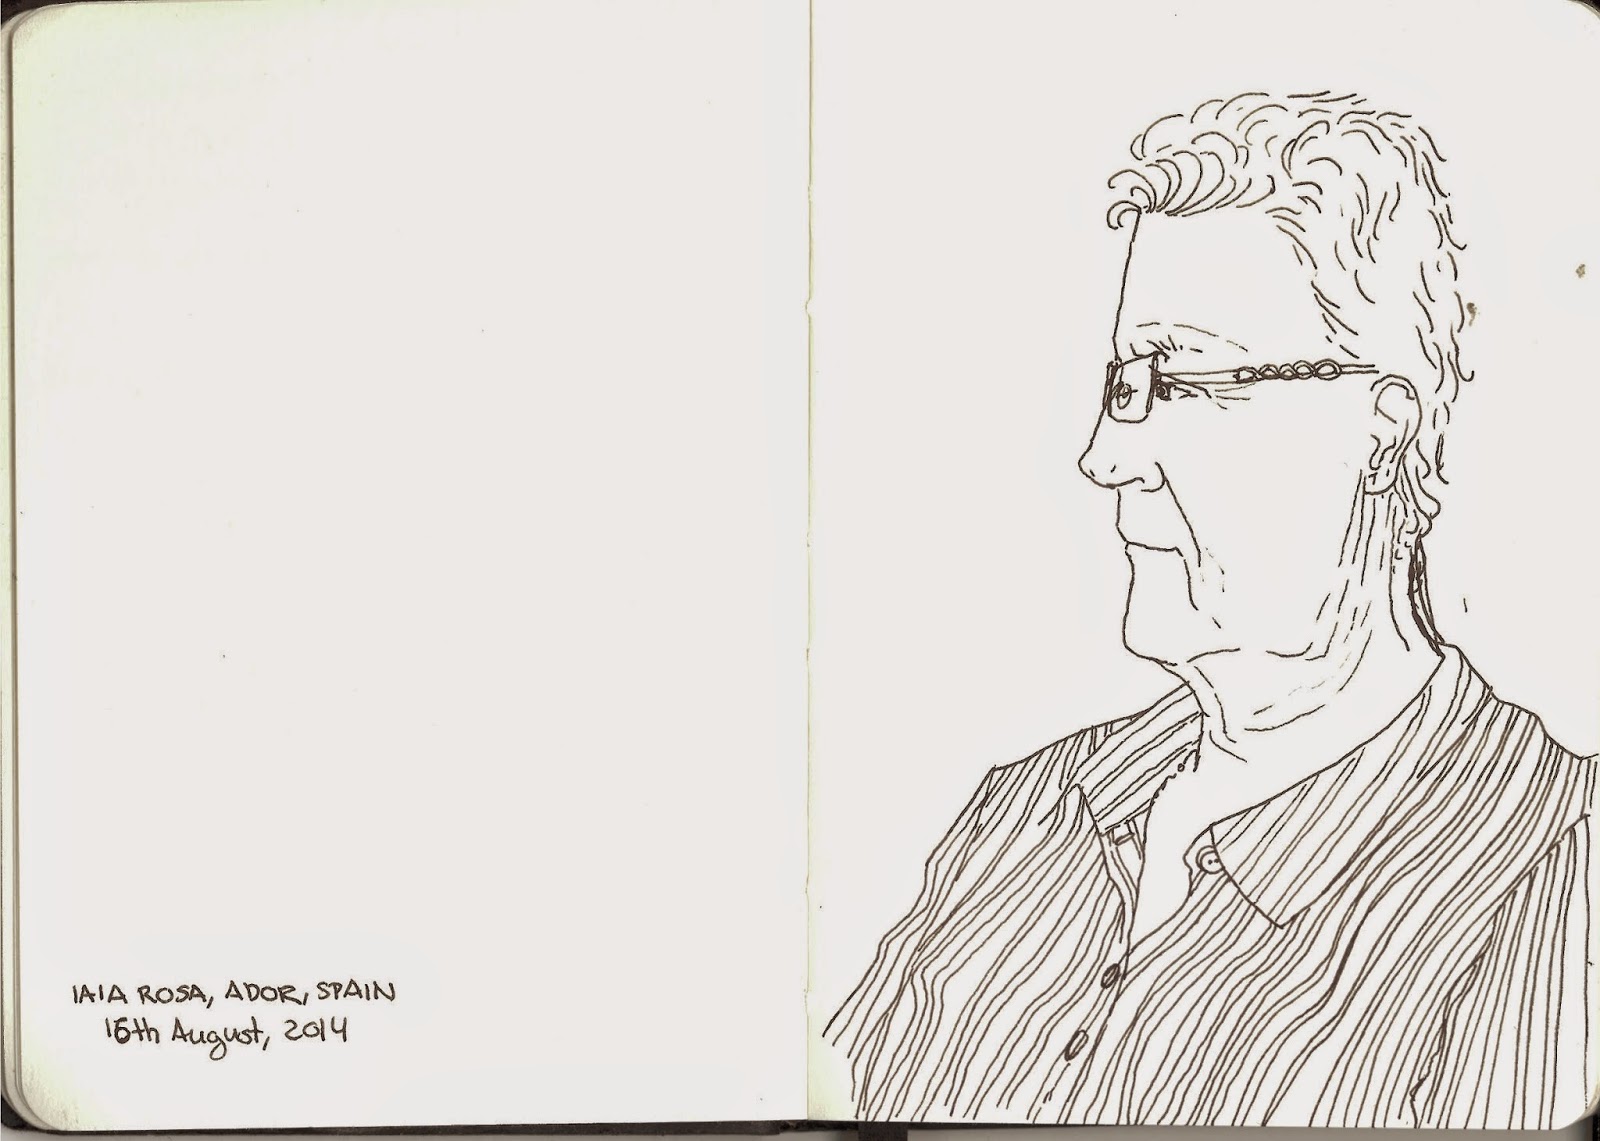 IAIA ROSA, ADOR, SPAIN
16th August, 2014